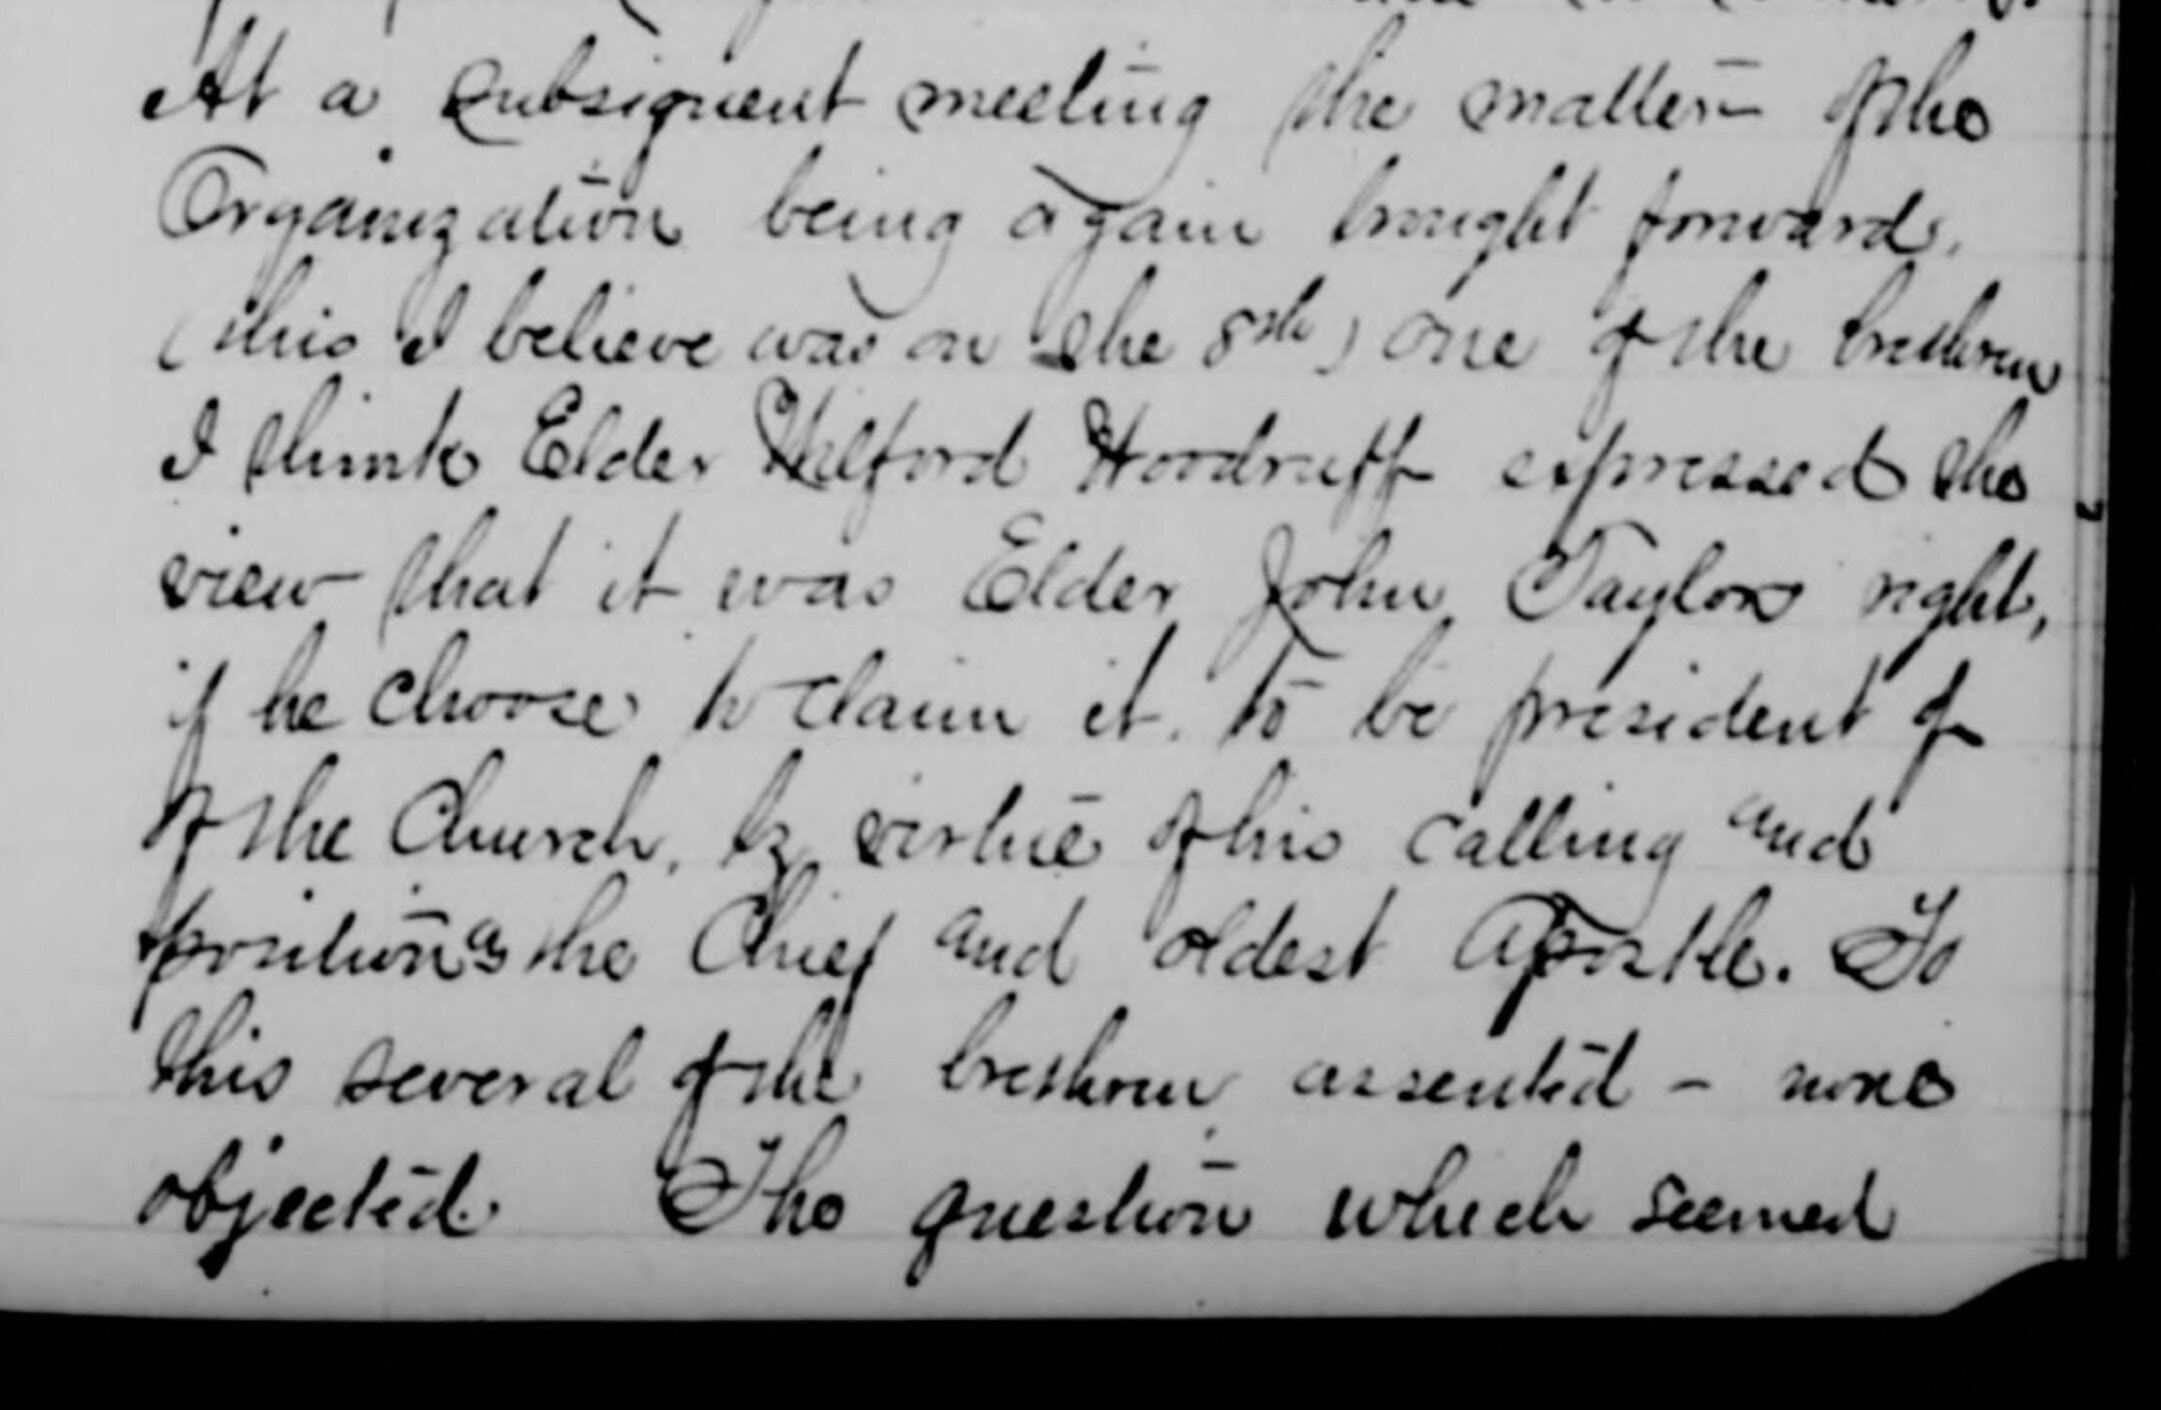 At a subsiquent meeting the matter of the
Organization being again brought forward,
(this I believe was on the 8th) one of the brethren
I think Elder Wilford Woodruff expressed the
view that it was Elder John Taylors right,
if he choose to claim it. to be president of
of the Church, by virtue of his calling and
position as the Chief and oldest Apostle. To
this several of the brethren assented – none
objected. The question which seemed